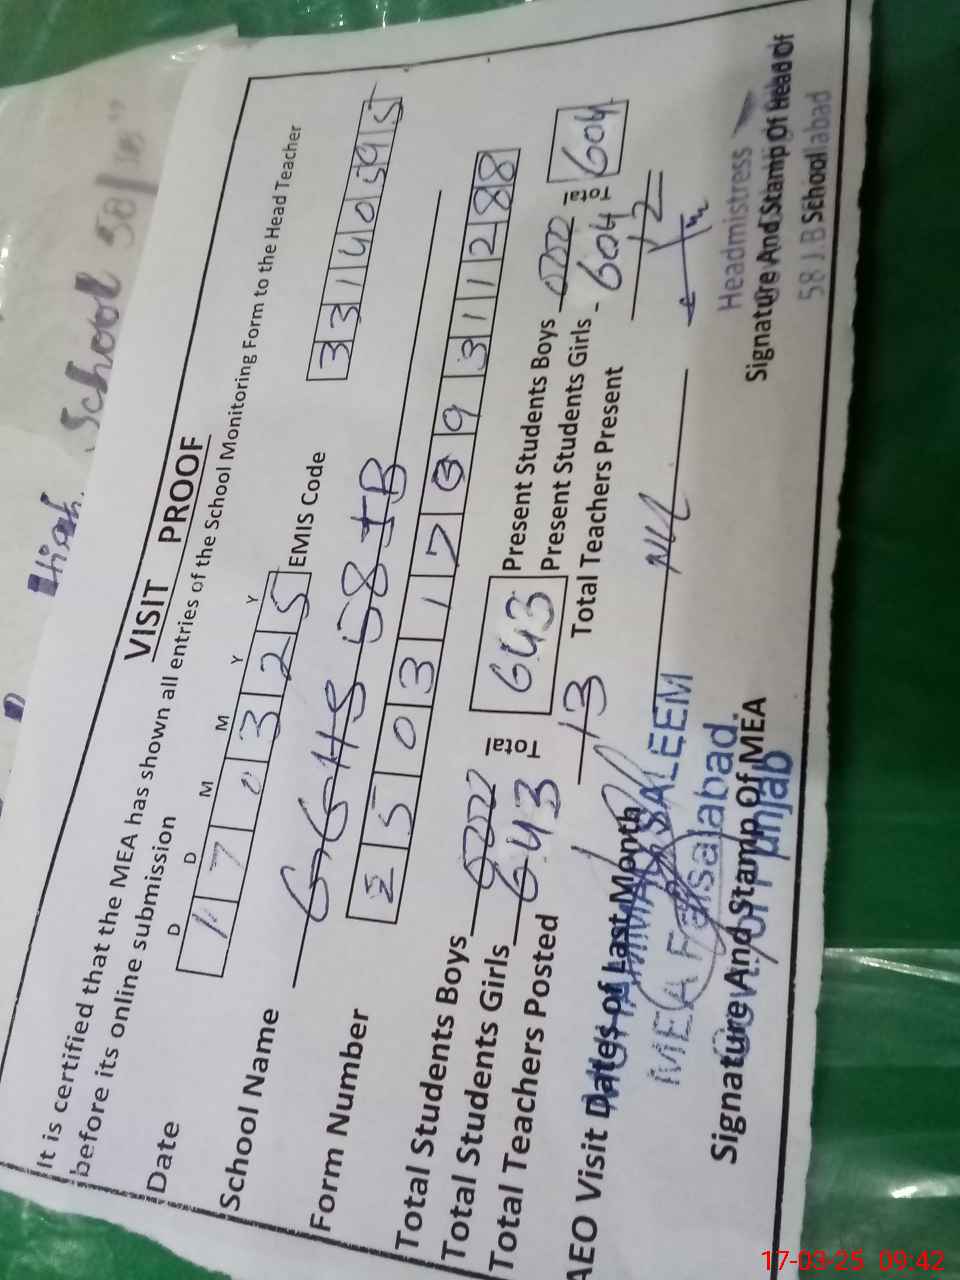 High School 58/JB"
VISIT PROOF
It is certified that the MEA has shown all entries of the School Monitoring Form to the Head Teacher
before its online submission
D D M M Y Y
Date 1 7 0 3 2 5 EMIS Code 3 3 1 4 0 5 9 5
School Name GGHS 58 JB
Form Number 2 5 0 3 1 7 9 9 3 1 1 2 8 8
Total Students Boys Total 643 Present Students Boys Total 604
Total Students Girls 643 Present Students Girls 604
Total Teachers Posted 13 Total Teachers Present 12
AEO Visit Dates of Last Month NIL
SALEEM
MEA Faisalabad.
Punjab
Signature And Stamp Of MEA
Headmistress
Signature And Stamp Of Head Of
School
58 J.B abad
17-03-25 09:42